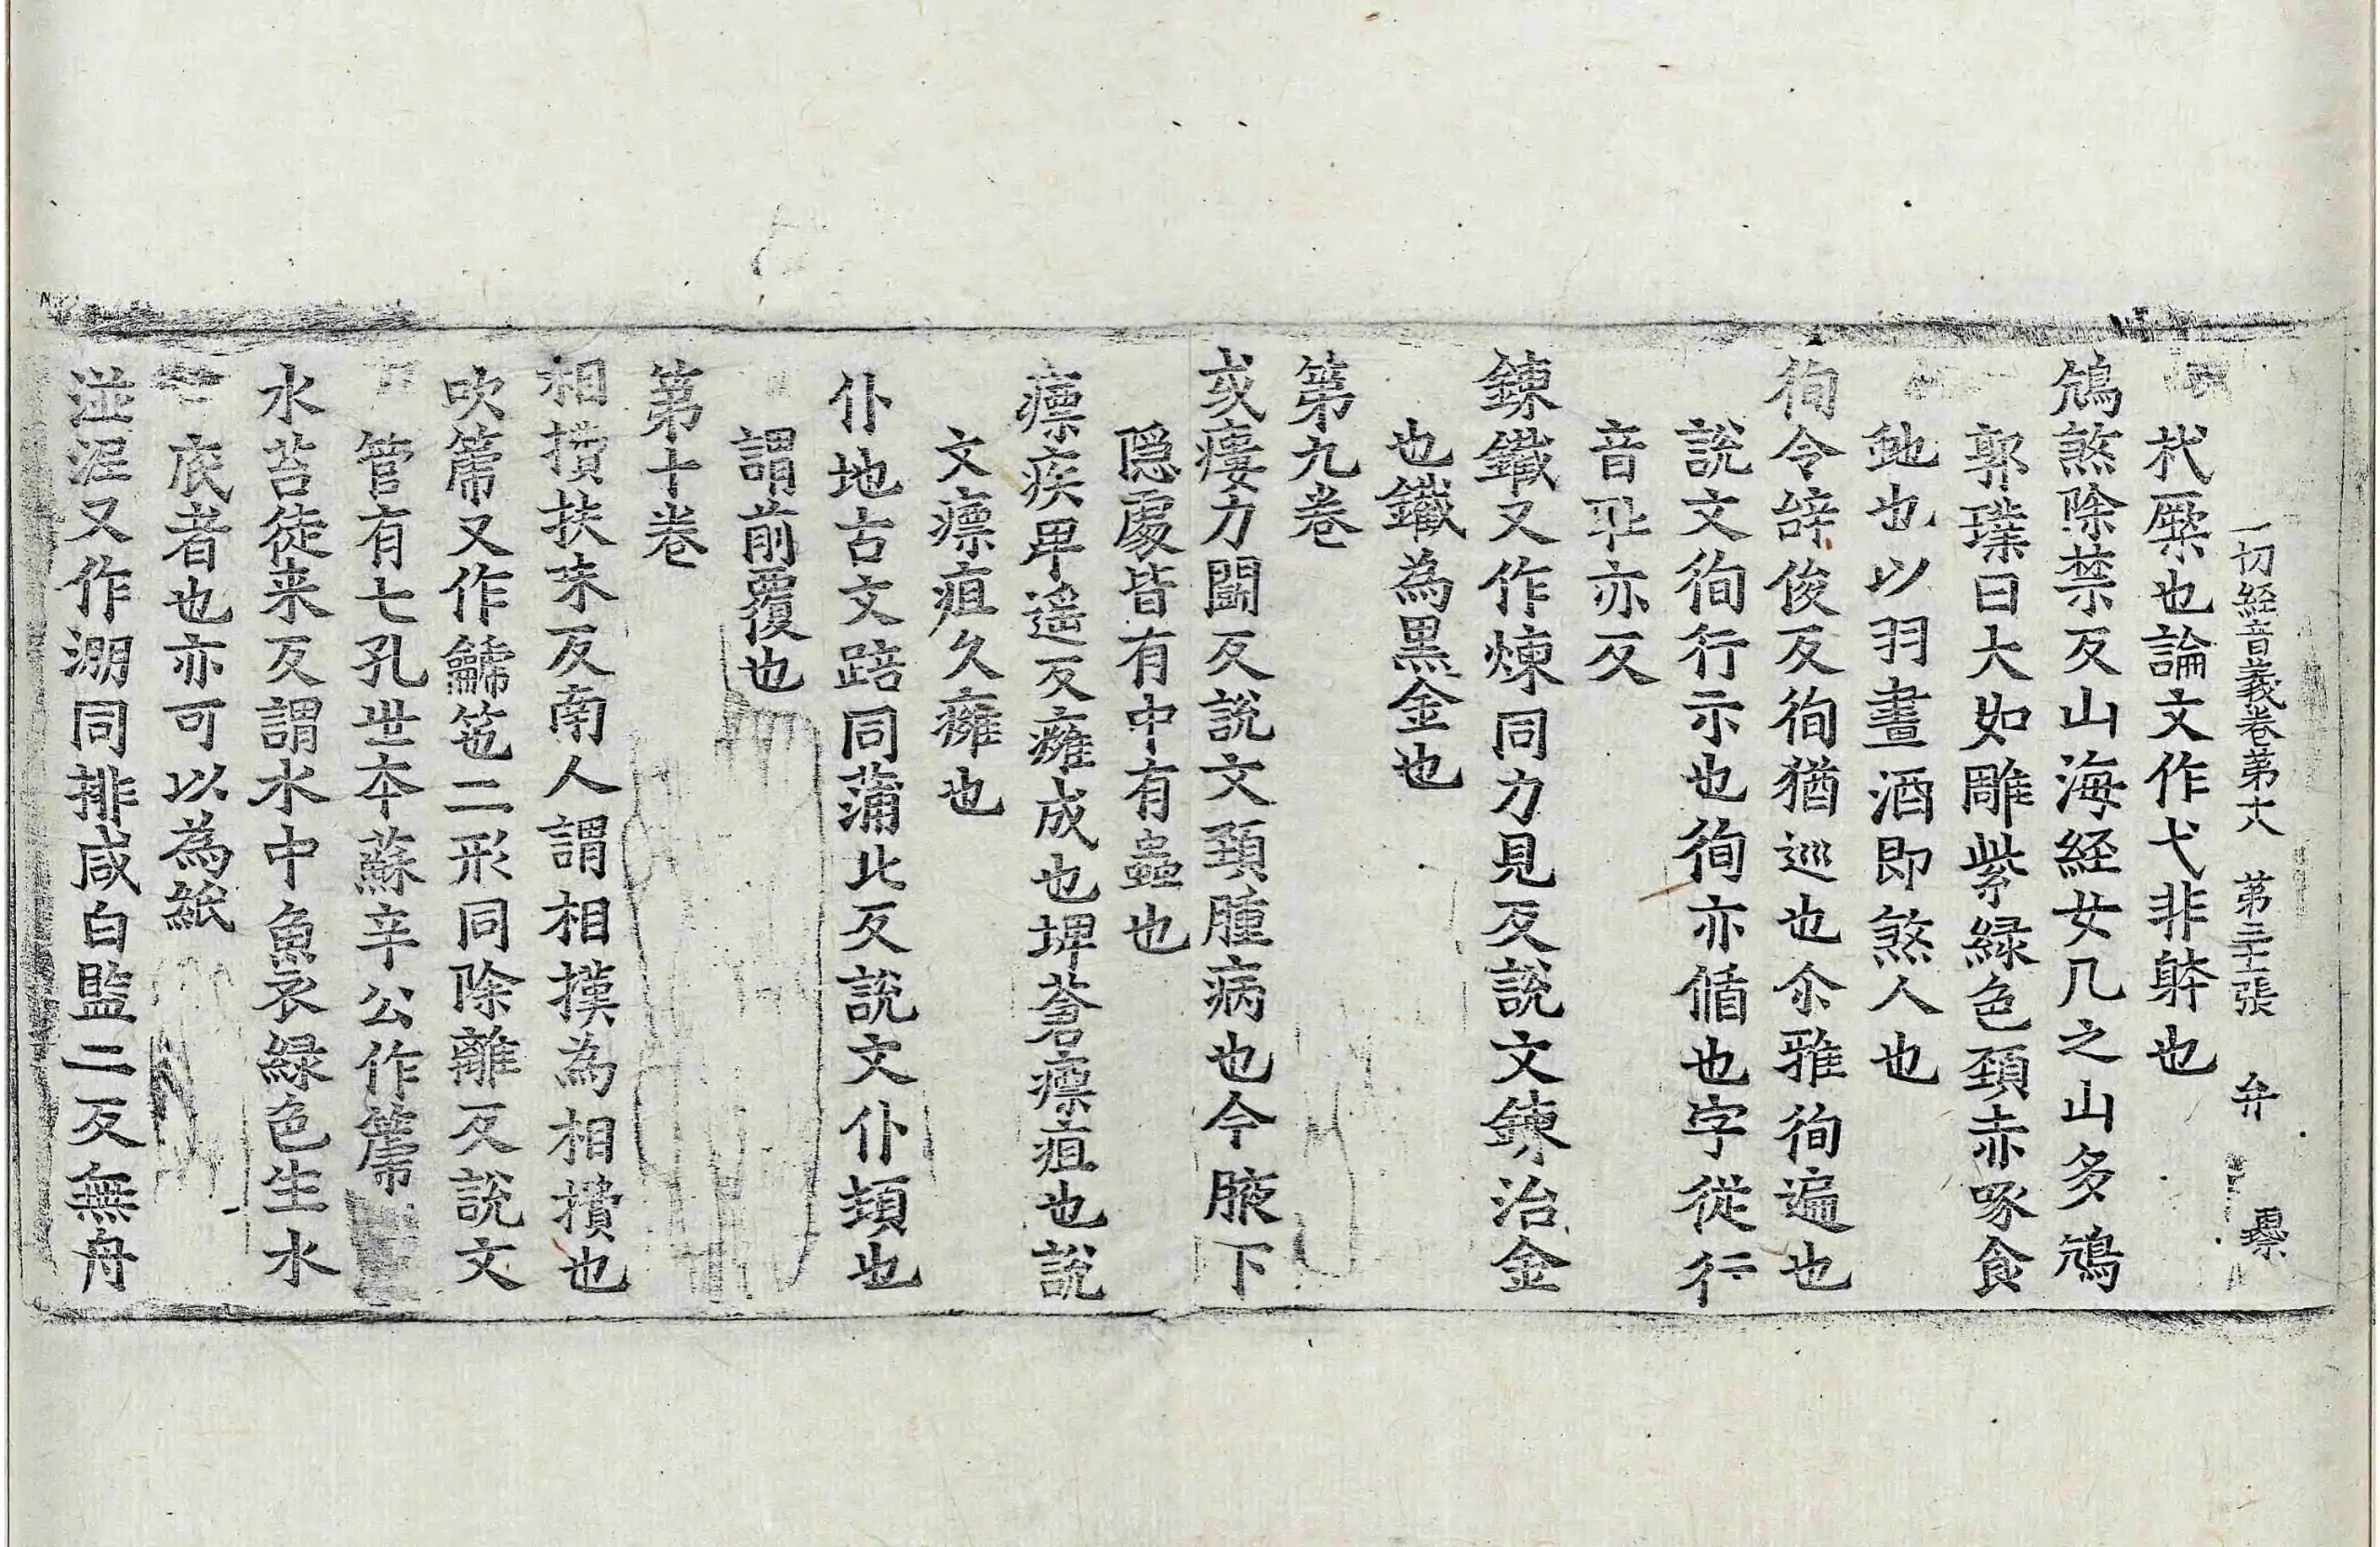 一切経音義卷第十八 第二十張 弁
杙橜也論文作弋非躰也
鴆煞除禁反山海経女几之山多鴆
郭璞曰大如雕紫緑色頚赤啄食
虵也以羽畫酒即煞人也
徇令辝俊反徇猶巡也尒雅徇遍也
說文徇行示也徇亦循也字從行
音耻亦反
鍊鐵又作煉同力見反說文鍊治金
也鐵為黒金也
第九卷
或瘻力鬪反說文頚腫病也今腋下
隠處皆有中有蟲也
瘭疾卑遥反癰成也埤蒼瘭疽也說
文瘭疽久癰也
仆地古文踣同蒲北反說文仆頓也
謂前覆也
第十卷
相㩌扶末反南人謂相撲為相㩌也
吹篪又作䶵竾二形同除離反說文
管有七孔世夲蘇辛公作篪
水苔徒来反謂水中魚衣緑色生水
底者也亦可以為紙
湴渥又作淜同排咸白監二反無舟